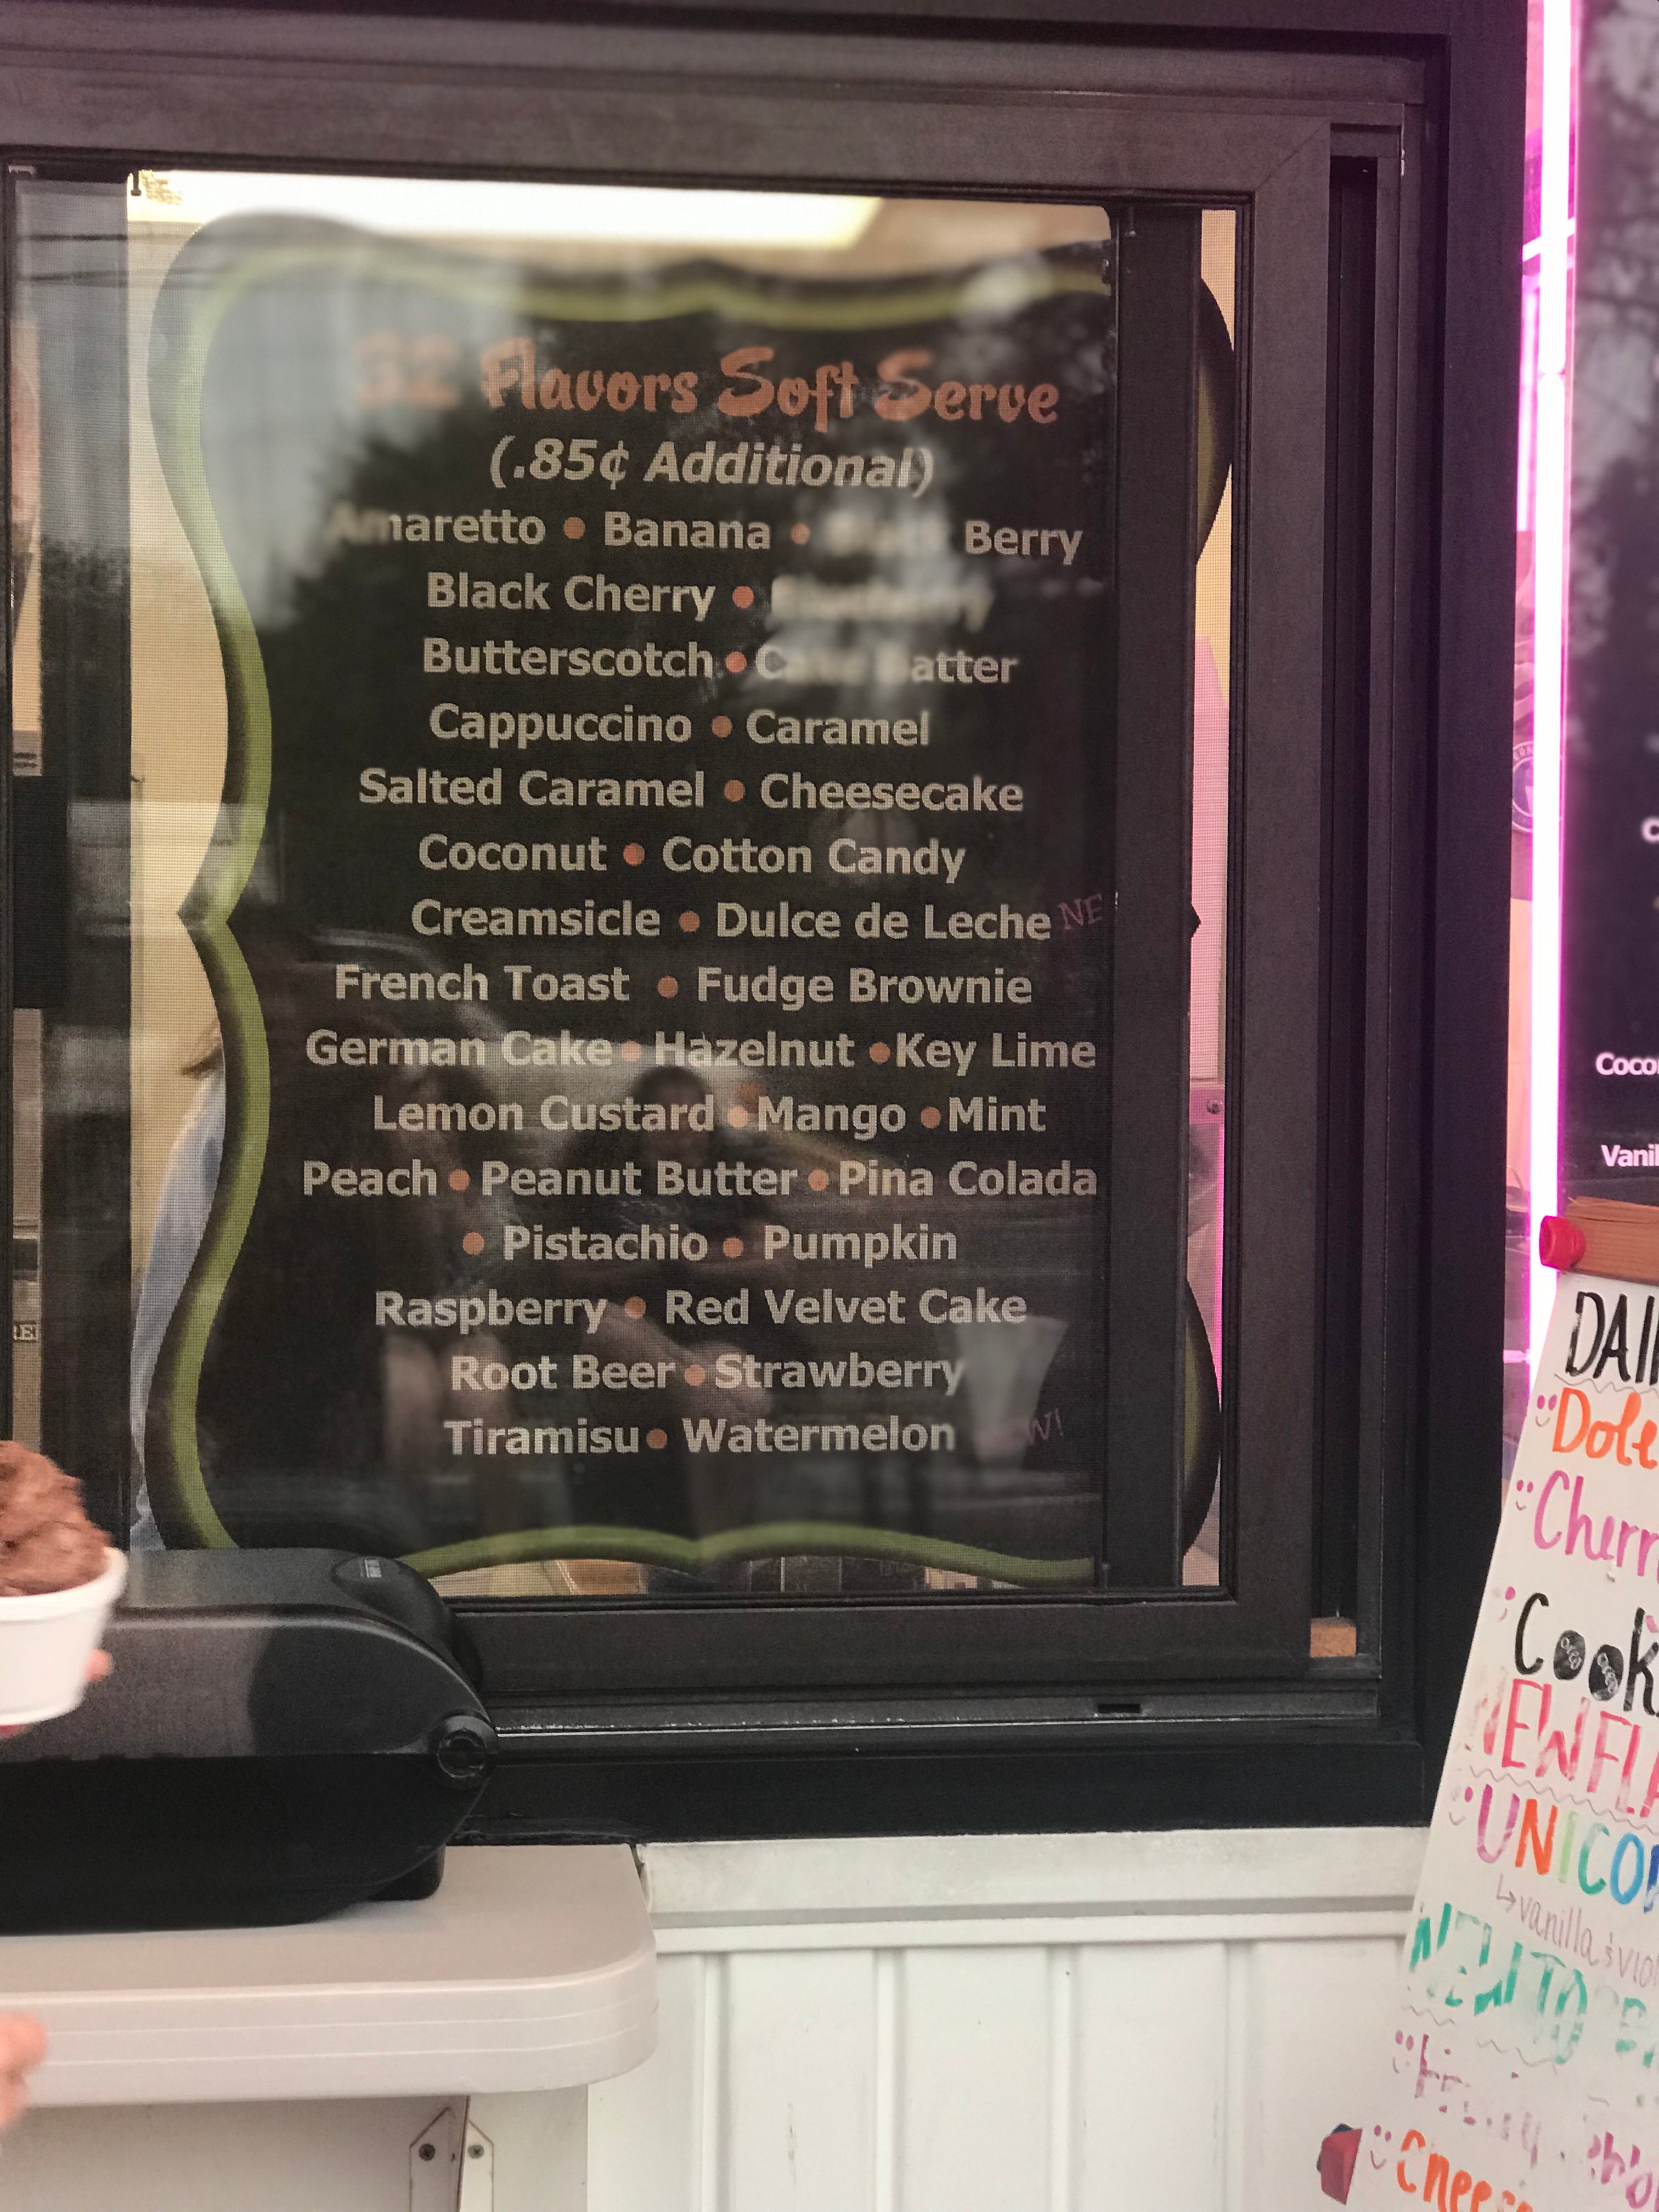 32 Flavors Soft Serve
(.85¢ Additional)
Amaretto • Banana • Black Berry
Black Cherry • Blueberry
Butterscotch • Cake Batter
Cappuccino • Caramel
Salted Caramel • Cheesecake
Coconut • Cotton Candy
Creamsicle • Dulce de Leche NE
French Toast • Fudge Brownie
German Cake • Hazelnut • Key Lime
Lemon Custard • Mango • Mint
Peach • Peanut Butter • Pina Colada
• Pistachio • Pumpkin
Raspberry • Red Velvet Cake
Root Beer • Strawberry
Tiramisu • Watermelon
Coco
Vanil
DAI
Dole
Cherr
Cook
NEW FLA
UNICO
↳vanilla & vio
NEW TO
Chees